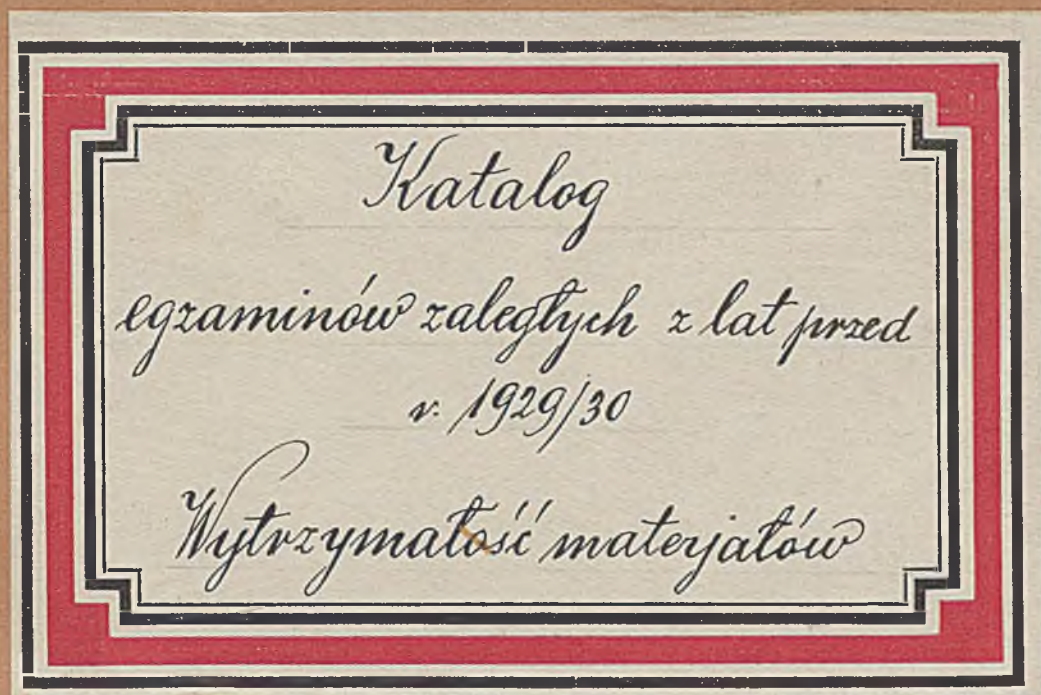 Katalog
egzaminów zaległych z lat przed
r. 1929/30
Wytrzymałość materjałów